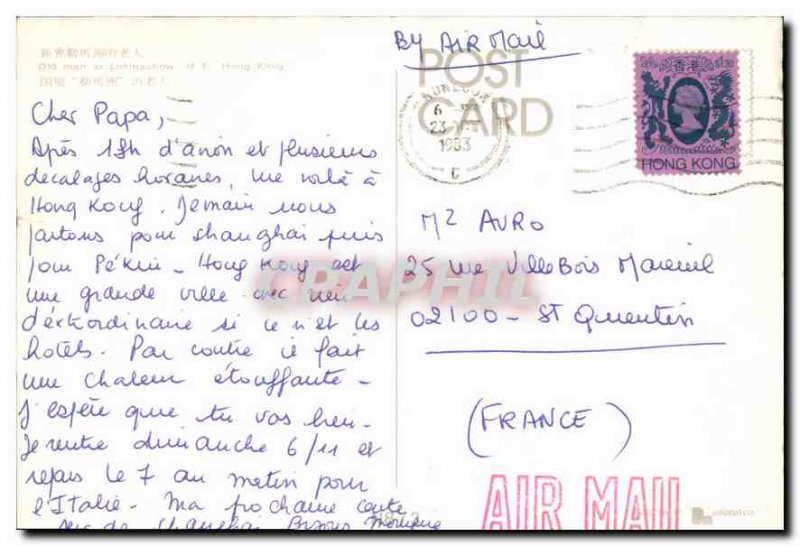 By Air Mail
POST
CARD
香港 $1.30
HONG KONG
KOWLOON
6
23
1983
C
Old man at Lokmachow, N.T. Hong Kong
Cher Papa,
Après 18h d'avion et plusieurs
decalages horaires, me voilà à
Hong Kong. Demain nous
partons pour Shanghai puis
pour Pékin - Hong Kong est
une grande ville avec rien
d'extraordinaire si ce n'est les
hotels. Par contre il fait
une chaleur étouffante -
J'espère que tu vas bien.
Je rentre dimanche 6/11 et
repars le 7 au matin pour
l'Italie. Ma prochaine carte
de Shanghai Bisous Monique
Mr AVRO
25 rue Villebois Mareuil
02100 - St Quentin
(FRANCE)
CPAPHIL
AIR MAIL